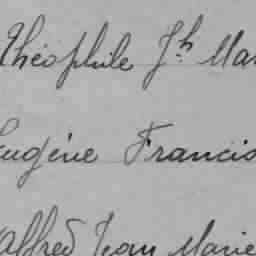 Théophile Jh Mar
Eugène Francis
Alfred Jean Marie